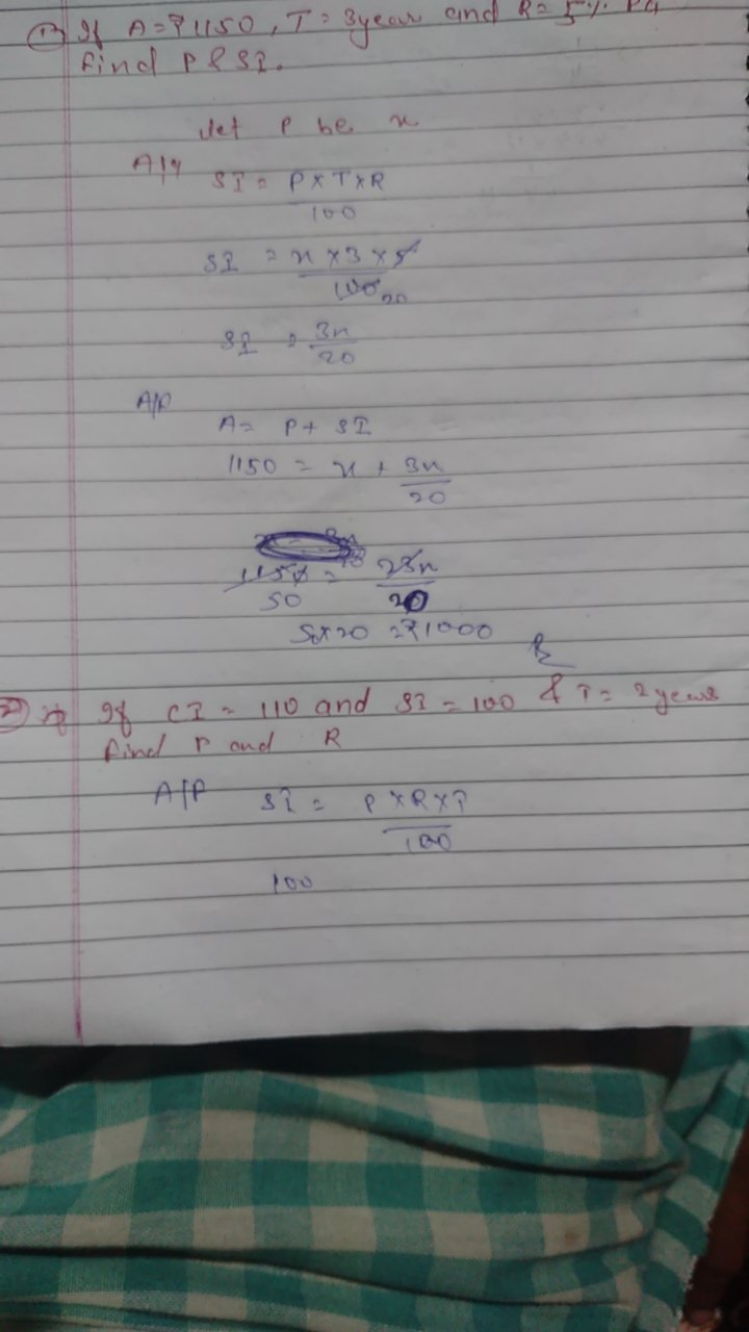 If A = ₹1150, T = 3year and R = 5%
find P & SI.
Let P be x
A/q
SI = P × T × R
100
SI = x × 3 × 5
100 20
SI = 3x
20
A/P
A = P + SI
1150 = x + 3x
20
1150 = 23x
50 20
50×20 = ₹1000
If CI = 110 and SI = 100 & T = 2 years
find P and R
A/P SI = P × R × T
100
100